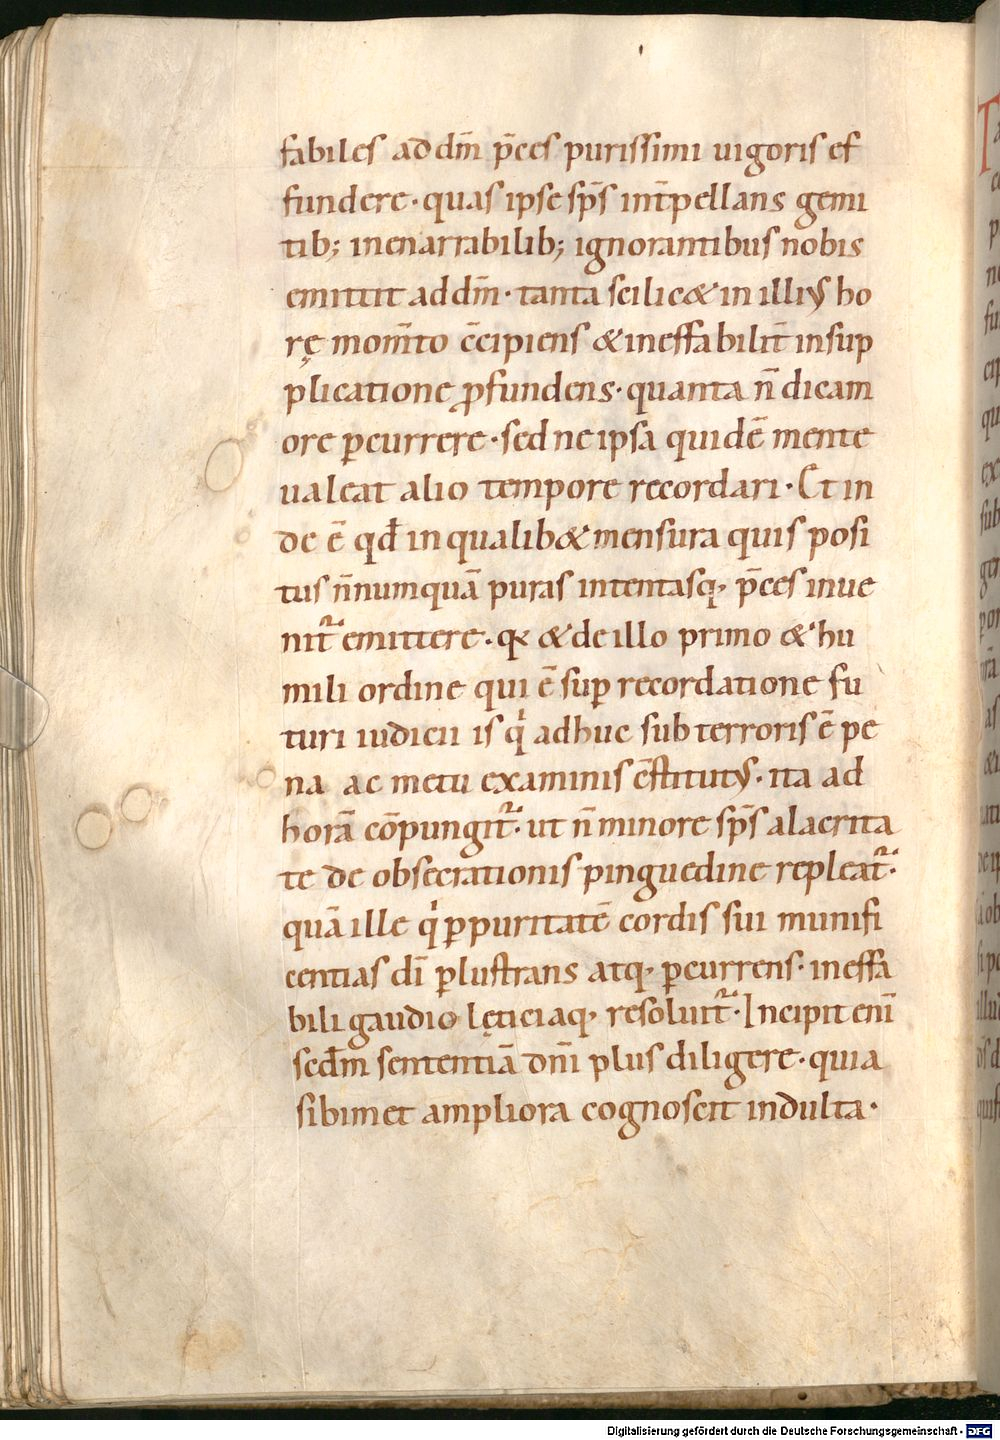 fabiles ad dm̄ p̄ces purissimi uigoris ef
fundere· quas ipse sp̄s int̄pellans gemi
tib; inenarrabilib; ignorantibus nobis
emittit ad dm̄· tanta scilic& in illiꝰ ho
rę mom̄to c̄cipiens & ineffabilit̄ in sup
p̄licatione ꝓfundens· quanta n̄ dicam
ore ꝑcurrere· sed ne ipsa quidē mente
ualeat alio tempore recordari· Et in
de ē qđ in qualib& mensura quis posi
tus n̄numquā puras intentasq, p̄ces inue
nit᷑ emittere· qꝛ & de illo primo & hu
mili ordine qui ē suꝑ recordatione fu
turi iudicii is qͥ adhuc sub terroris ē pe
na ac metu examinis c̄stitutꝰ· ita ad
horā cōpungit᷑· ut n̄ minore sp̄s alacrita
te de obsecrationis pinguedine repleat᷑·
quā ille qͥ ꝑ puritatē cordis sui munifi
centias dī ꝑlustrans atq, ꝑcurrens· ineffa
bili gaudio lęticiaq, resoluit᷑· Incipit eni̅
scd̄m sententiā dn̄i plus diligere· quia
sibimet ampliora cognoscit indulta·
Digitalisierung gefördert durch die Deutsche Forschungsgemeinschaft - DFG